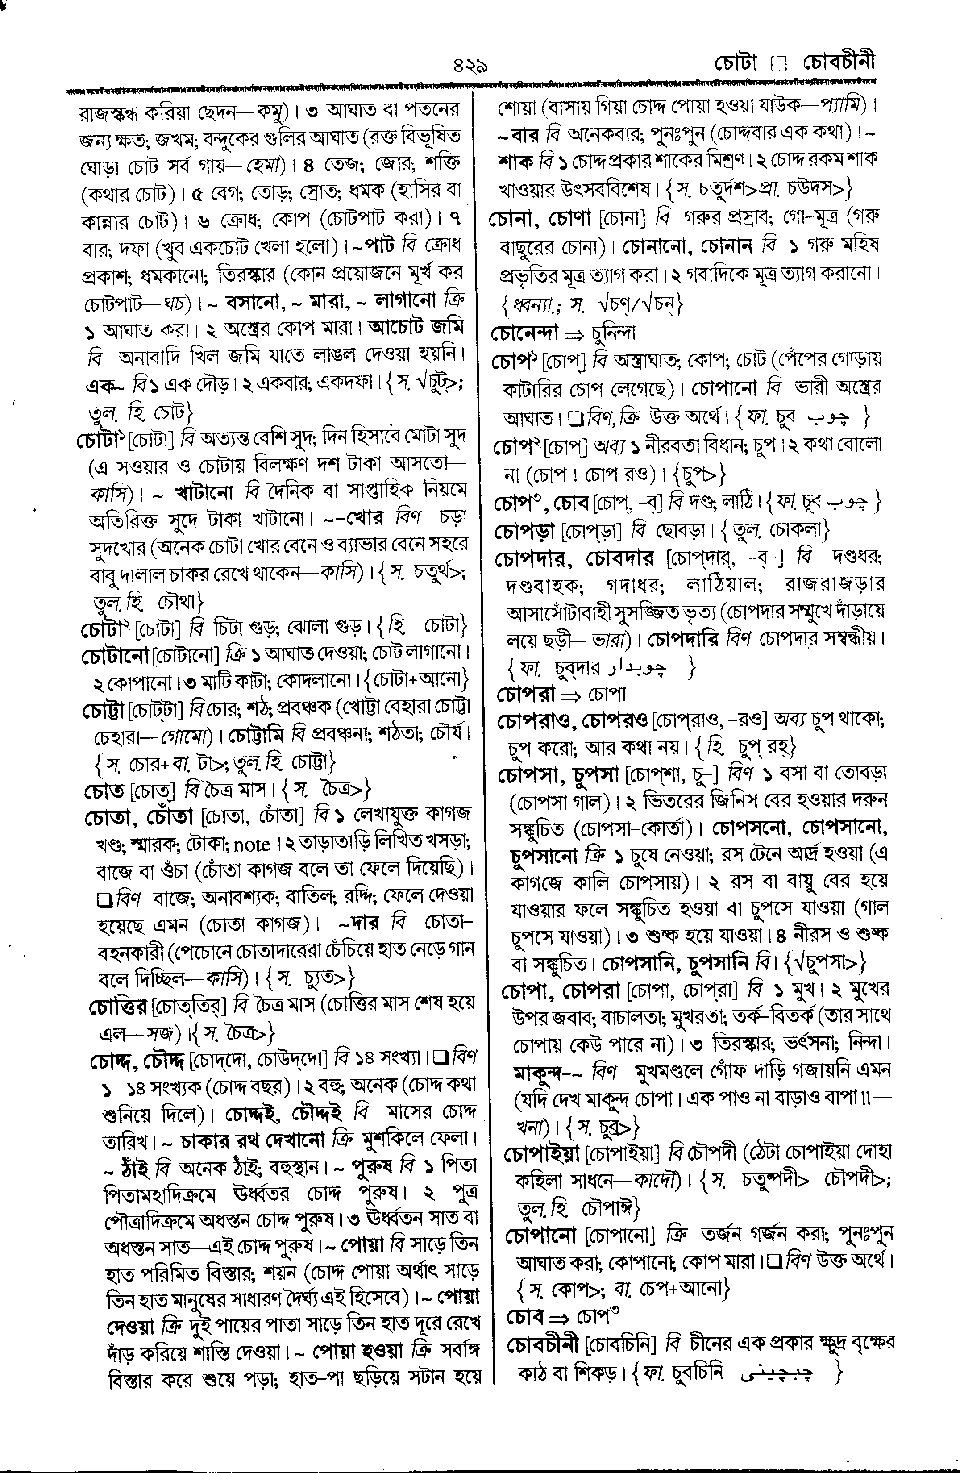 ৪২৯
চোটা □ চোবচীনী
রাজস্কন্ধ করিয়া ছেদন—কমু)। ৩ আঘাত বা পতনের
জন্য ক্ষত; জখম; বন্দুকের গুলির আঘাত (রক্ত বিভূষিত
ঘোড়া চোট সর্ব গায়—হেমা)। ৪ তেজ; জোর; শক্তি
(কথার চোট)। ৫ বেগ; তোড়; স্রোত; ধমক (হাসির বা
কান্নার চোট)। ৬ ক্রোধ; কোপ (চোটপাট করা)। ৭
বার; দফা (খুব একচোট খেলা হলো)। ~পাট বি ক্রোধ
প্রকাশ; ধমকানো; তিরস্কার (কোন প্রয়োজনে মূর্খ কর
চোটপাট—ঘচ)। ~ বসানো, ~ মারা, ~ লাগানো ক্রি
১ আঘাত করা। ২ অস্ত্রের কোপ মারা। আচোট জমি
বি অনাবাদি খিল জমি যাতে লাঙল দেওয়া হয়নি।
এক~ বি ১ এক দৌড়। ২ একবার; একদফা। {স. √চুট্>;
তুল. হি. চোট}
চোটা১ [চোটা] বি অত্যন্ত বেশি সুদ; দিন হিসাবে মোটা সুদ
(এ সওয়ার ও চোটায় বিলক্ষণ দশ টাকা আসতো—
কাসি)। ~ খাটানো বি দৈনিক বা সাপ্তাহিক নিয়মে
অতিরিক্ত সুদে টাকা খাটানো। ~-খোর বিণ চড়া
সুদখোর (অনেক চোটা খোর বেনে ও ব্যাভার বেনে সহরে
বাবু দালাল চাকর রেখে থাকেন—কাসি)। {স. চতুর্থ>;
তুল. হি. চৌথা}
চোটা২ [চোটা] বি চিটা গুড়; ঝোলা গুড়। {হি. চোটা}
চোটানো [চোটানো] ক্রি ১ আঘাত দেওয়া; চোট লাগানো।
২ কোপানো। ৩ মাটি কাটা; কোদলানো। {চোটা+আনো}
চোট্টা [চোট্‌টা] বি চোর; শঠ; প্রবঞ্চক (খোট্টা বেহারা চোট্টা
চেহারা—গোমো)। চোট্টামি বি প্রবঞ্চনা; শঠতা; চৌর্য।
{স. চোর+বা. টা>; তুল. হি. চোট্টা}
চোত [চোত্] বি চৈত্র মাস। {স. চৈত্র>}
চোতা, চোঁতা [চোতা, চোঁতা] বি ১ লেখাযুক্ত কাগজ
খণ্ড; স্মারক; টোকা; note। ২ তাড়াতাড়ি লিখিত খসড়া;
বাজে বা ওঁচা (চোঁতা কাগজ বলে তা ফেলে দিয়েছি)।
□ বিণ বাজে; অনাবশ্যক; বাতিল; রদ্দি; ফেলে দেওয়া
হয়েছে এমন (চোতা কাগজ)। ~দার বি চোতা-
বহনকারী (পেচোনে চোতাদারেরা চেঁচিয়ে হাত নেড়ে গান
বলে দিচ্ছিল—কাসি)। {স. চ্যুত>}
চোত্তির [চোত্‌তির্] বি চৈত্র মাস (চোত্তির মাস শেষ হয়ে
এল—সজ)। {স. চৈত্র>}
চোদ্দ, চৌদ্দ [চোদ্‌দো, চোউদ্‌দো] বি ১৪ সংখ্যা। □ বিণ
১ ১৪ সংখ্যক (চোদ্দ বছর)। ২ বহু; অনেক (চোদ্দ কথা
শুনিয়ে দিলে)। চোদ্দই, চৌদ্দই বি মাসের চোদ্দ
তারিখ। ~ চাকার রথ দেখানো ক্রি মুশকিলে ফেলা।
~ ঠাঁই বি অনেক ঠাঁই; বহুস্থান। ~ পুরুষ বি ১ পিতা
পিতামহাদিক্রমে ঊর্ধ্বতর চোদ্দ পুরুষ। ২ পুত্র
পৌত্রাদিক্রমে অধস্তন চোদ্দ পুরুষ। ৩ ঊর্ধ্বতন সাত বা
অধস্তন সাত—এই চোদ্দ পুরুষ। ~ পোয়া বি সাড়ে তিন
হাত পরিমিত বিস্তার; শয়ন (চোদ্দ পোয়া অর্থাৎ সাড়ে
তিন হাত মানুষের সাধারণ দৈর্ঘ্য এই হিসেবে)। ~ পোয়া
দেওয়া ক্রি দুই পায়ের পাতা সাড়ে তিন হাত দূরে রেখে
দাঁড় করিয়ে শাস্তি দেওয়া। ~ পোয়া হওয়া ক্রি সর্বাঙ্গ
বিস্তার করে শুয়ে পড়া; হাত-পা ছড়িয়ে সটান হয়ে
শোয়া (বাসায় গিয়া চোদ্দ পোয়া হওয়া যাউক—প্যামি)।
~বার বি অনেকবার; পুনঃপুন (চোদ্দবার এক কথা)। ~
শাক বি ১ চোদ্দ প্রকার শাকের মিশ্রণ। ২ চোদ্দ রকম শাক
খাওয়ার উৎসববিশেষ। {স. চতুর্দশ>প্রা. চউদস>}
চোনা, চোণা [চোনা] বি গরুর প্রস্রাব; গো-মূত্র (গরু
বাছুরের চোনা)। চোনানো, চোনান বি ১ গরু মহিষ
প্রভৃতির মূত্র ত্যাগ করা। ২ গবাদিকে মূত্র ত্যাগ করানো।
{ধ্বন্যা.; স. √চণ্/√চন্}
চোনেন্দা ⇒ চুনিন্দা
চোপ১ [চোপ্] বি অস্ত্রাঘাত; কোপ; চোট (পেঁপের গোড়ায়
কাটারির চোপ লেগেছে)। চোপানো বি ভারী অস্ত্রের
আঘাত। □ বিণ, ক্রি উক্ত অর্থে। {ফা. চূব چوب }
চোপ২ [চোপ্] অব্য ১ নীরবতা বিধান; চুপ। ২ কথা বোলো
না (চোপ! চোপ রও)। {চুপ>}
চোপ৩, চোব [চোপ্, -ব্] বি দণ্ড; লাঠি। {ফা. চূব چوب }
চোপড়া [চোপ্‌ড়া] বি ছোবড়া। {তুল. চোকলা}
চোপদার, চোবদার [চোপ্‌দার্, -ব্ ] বি দণ্ডধর;
দণ্ডবাহক; গদাধর; লাঠিয়াল; রাজরাজড়ার
আসাসোঁটাবাহী সুসজ্জিত ভৃত্য (চোপদার সম্মুখে দাঁড়ায়ে
লয়ে ছড়ী— ভারা)। চোপদারি বিণ চোপদার সম্বন্ধীয়।
{ফা. চুব্‌দার چوبدار }
চোপরা ⇒ চোপা
চোপরাও, চোপরও [চোপ্‌রাও, -রও] অব্য চুপ থাকো;
চুপ করো; আর কথা নয়। {হি. চুপ্ রহ্}
চোপসা, চুপসা [চোপ্‌শা, চু-] বিণ ১ বসা বা তোবড়া
(চোপসা গাল)। ২ ভিতরের জিনিস বের হওয়ার দরুন
সঙ্কুচিত (চোপসা-কোর্তা)। চোপসনো, চোপসানো,
চুপসানো ক্রি ১ চুষে নেওয়া; রস টেনে আর্দ্র হওয়া (এ
কাগজে কালি চোপসায়)। ২ রস বা বায়ু বের হয়ে
যাওয়ার ফলে সঙ্কুচিত হওয়া বা চুপসে যাওয়া (গাল
চুপসে যাওয়া)। ৩ শুষ্ক হয়ে যাওয়া। ৪ নীরস ও শুষ্ক
বা সঙ্কুচিত। চোপসানি, চুপসানি বি। {√চুপসা>}
চোপা, চোপরা [চোপা, চোপ্‌রা] বি ১ মুখ। ২ মুখের
উপর জবাব; বাচালতা; মুখরতা; তর্ক-বিতর্ক (তার সাথে
চোপায় কেউ পারে না)। ৩ তিরস্কার; ভর্ৎসনা; নিন্দা।
মাকুন্দ-~ বিণ মুখমণ্ডলে গোঁফ দাড়ি গজায়নি এমন
(যদি দেখ মাকুন্দ চোপা। এক পাও না বাড়াও বাপা॥—
খনা)। {স. চুব্র>}
চোপাইয়া [চোপাইয়া] বি চৌপদী (ঠেটা চোপাইয়া দোহা
কহিলা সাধনে—কাদৌ)। {স. চতুষ্পদী> চৌপদী>;
তুল. হি. চৌপাঈ}
চোপানো [চোপানো] ক্রি তর্জন গর্জন করা; পুনঃপুন
আঘাত করা; কোপানো; কোপ মারা। □ বিণ উক্ত অর্থে।
{স. কোপ>; বা. চোপ+আনো}
চোব ⇒ চোপ৩
চোবচীনী [চোবচিনি] বি চীনের এক প্রকার ক্ষুদ্র বৃক্ষের
কাঠ বা শিকড়। {ফা. চুবচিনি }